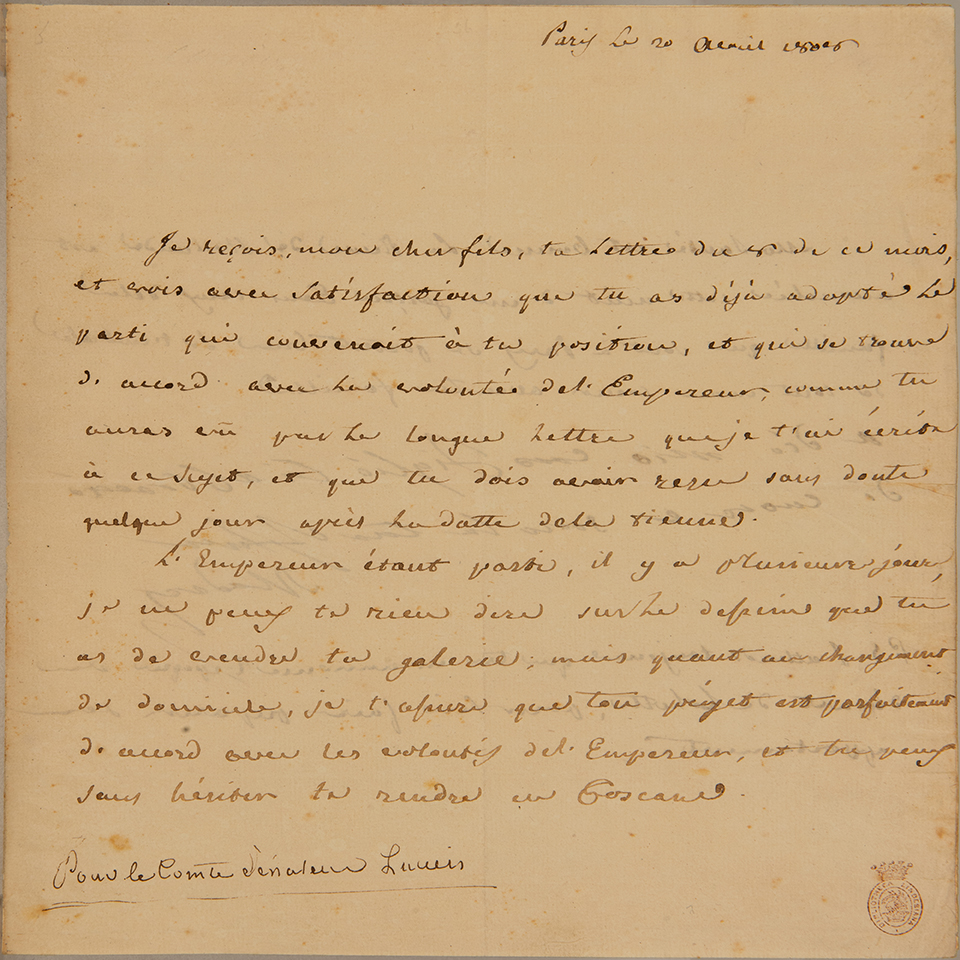 Paris Le 20 Avril 1808
Je reçois, mon cher fils, ta Lettre du 8 de ce mois,
et vois avec Satisfaction que tu as déjà adopté Le
parti qui convenoit à ta position, et qui se trouve
d'accord avec La volontée del'Empereur, comme tu
auras vû par La longue Lettre que je t'ai écrite
à ce Sujet, et que tu dois avoir reçu sans doute
quelque jour après La datte dela tienne.
L'Empereur étant parti, il y a plusieurs jours,
je ne peux te rien dire sur Le dessein que tu
as de vendre ta galerie; mais quant au changement
de domicile, je t'assure que ton projet est parfaitement
d'accord avec les volontés del'Empereur, et tu peux
sans hésiter te rendre en Toscane.
Pour le Comte Sénateur Lucien
BIBLIOTHECA LINDESIANA